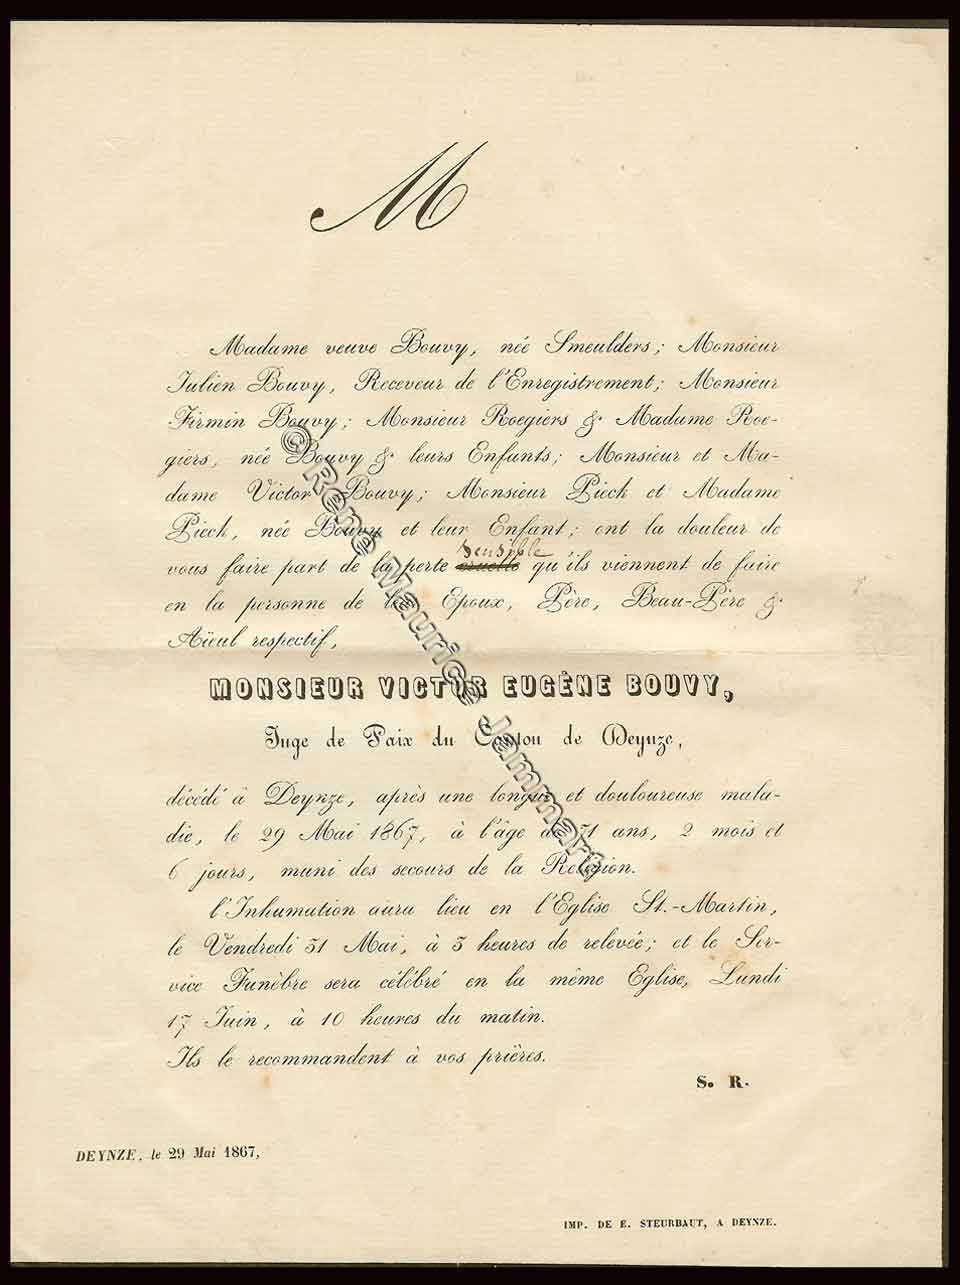 M
Madame veuve Bouvy, née Smeulders; Monsieur
Julien Bouvy, Receveur de l'Enregistrement; Monsieur
Firmin Bouvy; Monsieur Roegiers & Madame Roe-
giers, née Bouvy & leurs Enfants; Monsieur et Ma-
dame Victor Bouvy; Monsieur Pieck et Madame
Pieck, née Bouvy et leur Enfant; ont la douleur de
sensible
vous faire part de la perte cruelle qu'ils viennent de faire
en la personne de leur Epoux, Père, Beau-Père &
Aïeul respectif,
MONSIEUR VICTOR EUGÈNE BOUVY,
Juge de Paix du Canton de Deynze,
décédé à Deynze, après une longue et douloureuse mala-
die, le 29 Mai 1867, à l'âge de 71 ans, 2 mois et
6 jours, muni des secours de la Religion.
l'Inhumation aura lieu en l'Eglise St.-Martin,
le Vendredi 31 Mai, à 3 heures de relevée; et le Ser-
vice Funèbre sera célébré en la même Eglise, Lundi
17 Juin, à 10 heures du matin.
Ils le recommandent à vos prières.
S. R.
DEYNZE, le 29 Mai 1867,
IMP. DE E. STEURBAUT, A DEYNZE.
© René Maurice Jammart